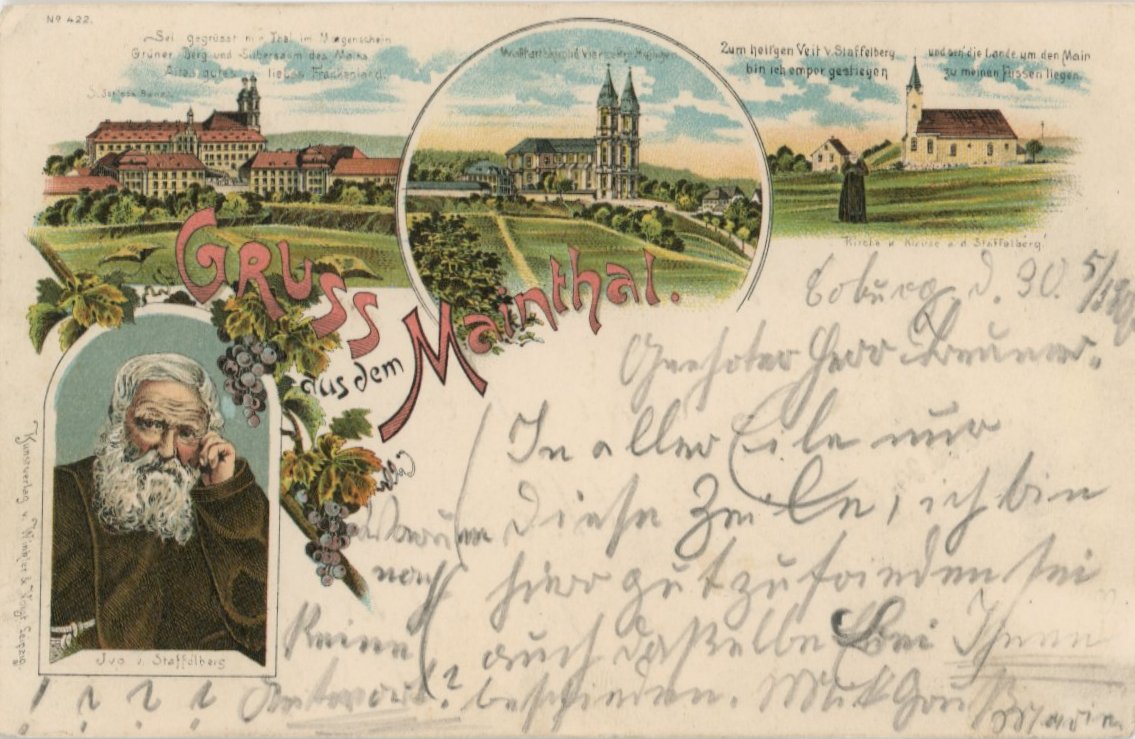 No 422.
Sei gegrüsst mir Thal im Morgenschein
Grüner Berg und Silbersaum des Mains
Altes gutes liebes Frankenland.
S. Schloss Banz.
Wallfahrtskirche Vierzehnheiligen
Zum heil'gen Veit v. Staffelberg
bin ich empor gestiegen
und seh' die Lande um den Main
zu meinen Füssen liegen.
Kirche u. Klause a. d. Staffelberg
Gruss
aus dem
Mainthal.
Ivo v. Staffelberg
Kunstverlag v. Winkler & Voigt Leipzig.
Coburg d. 30. 5/
Geehrter Herr
In aller Eile nur
diese Zeilen, ich bin
hier gut zufrieden sei
auch dasselbe bei Ihnen
beschieden. Mit Gruß
Warum
noch
keine
Antwort?
! ? ? ?